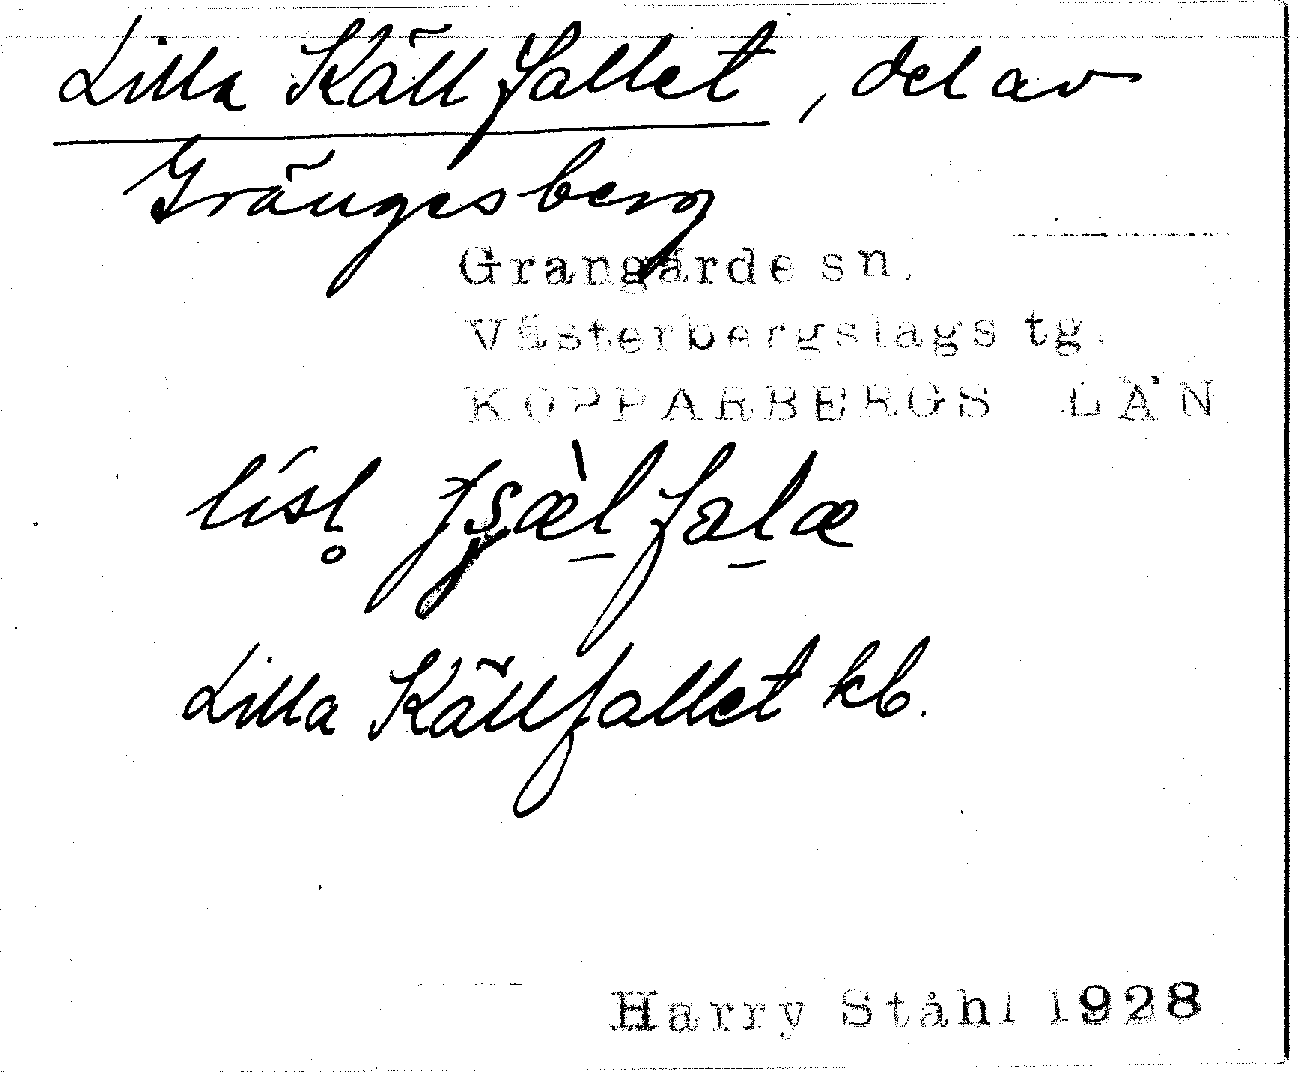 Lilla Källfallet, del av
Grängesberg
Grangärde sn.
Västerbergslags tg.
KOPPARBERGS LÄN
Lilla Källfallet kb.
Harry Ståhl 1928